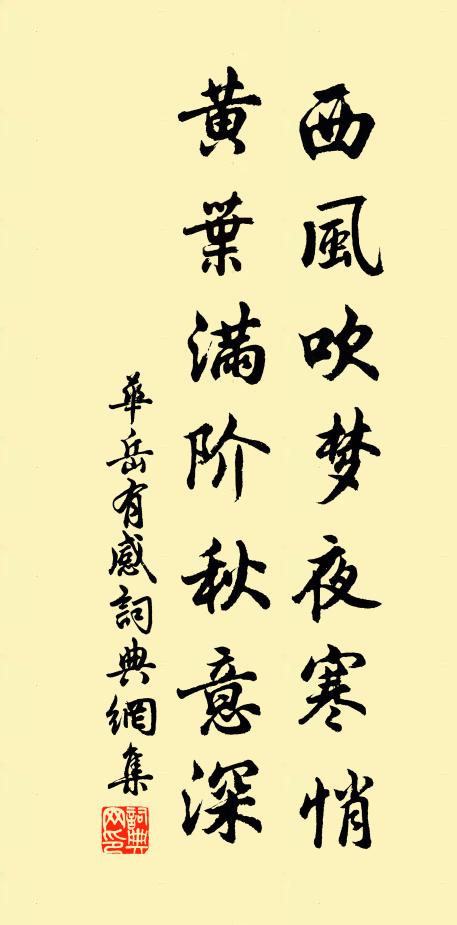 西風吹梦夜寒悄
黄葉滿阶秋意深
華岳有感詞典網集
詞典
网印